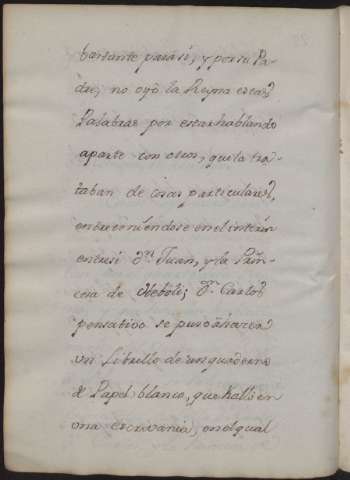 bastante para si, y por su Pa-
dre; no oyò la Reyna estas
Palabras por estar hablando
aparte con otros, que la tra-
taban de cosas particulares,
entreteniendose en el interin
entre si Dn. Juan, y la Prin-
cesa de Eboli; Dn. Carlos
pensativo se puso à hacer
un librillo de un quaderno
de Papel blanco, que hallò en
una escrivania, en el qual